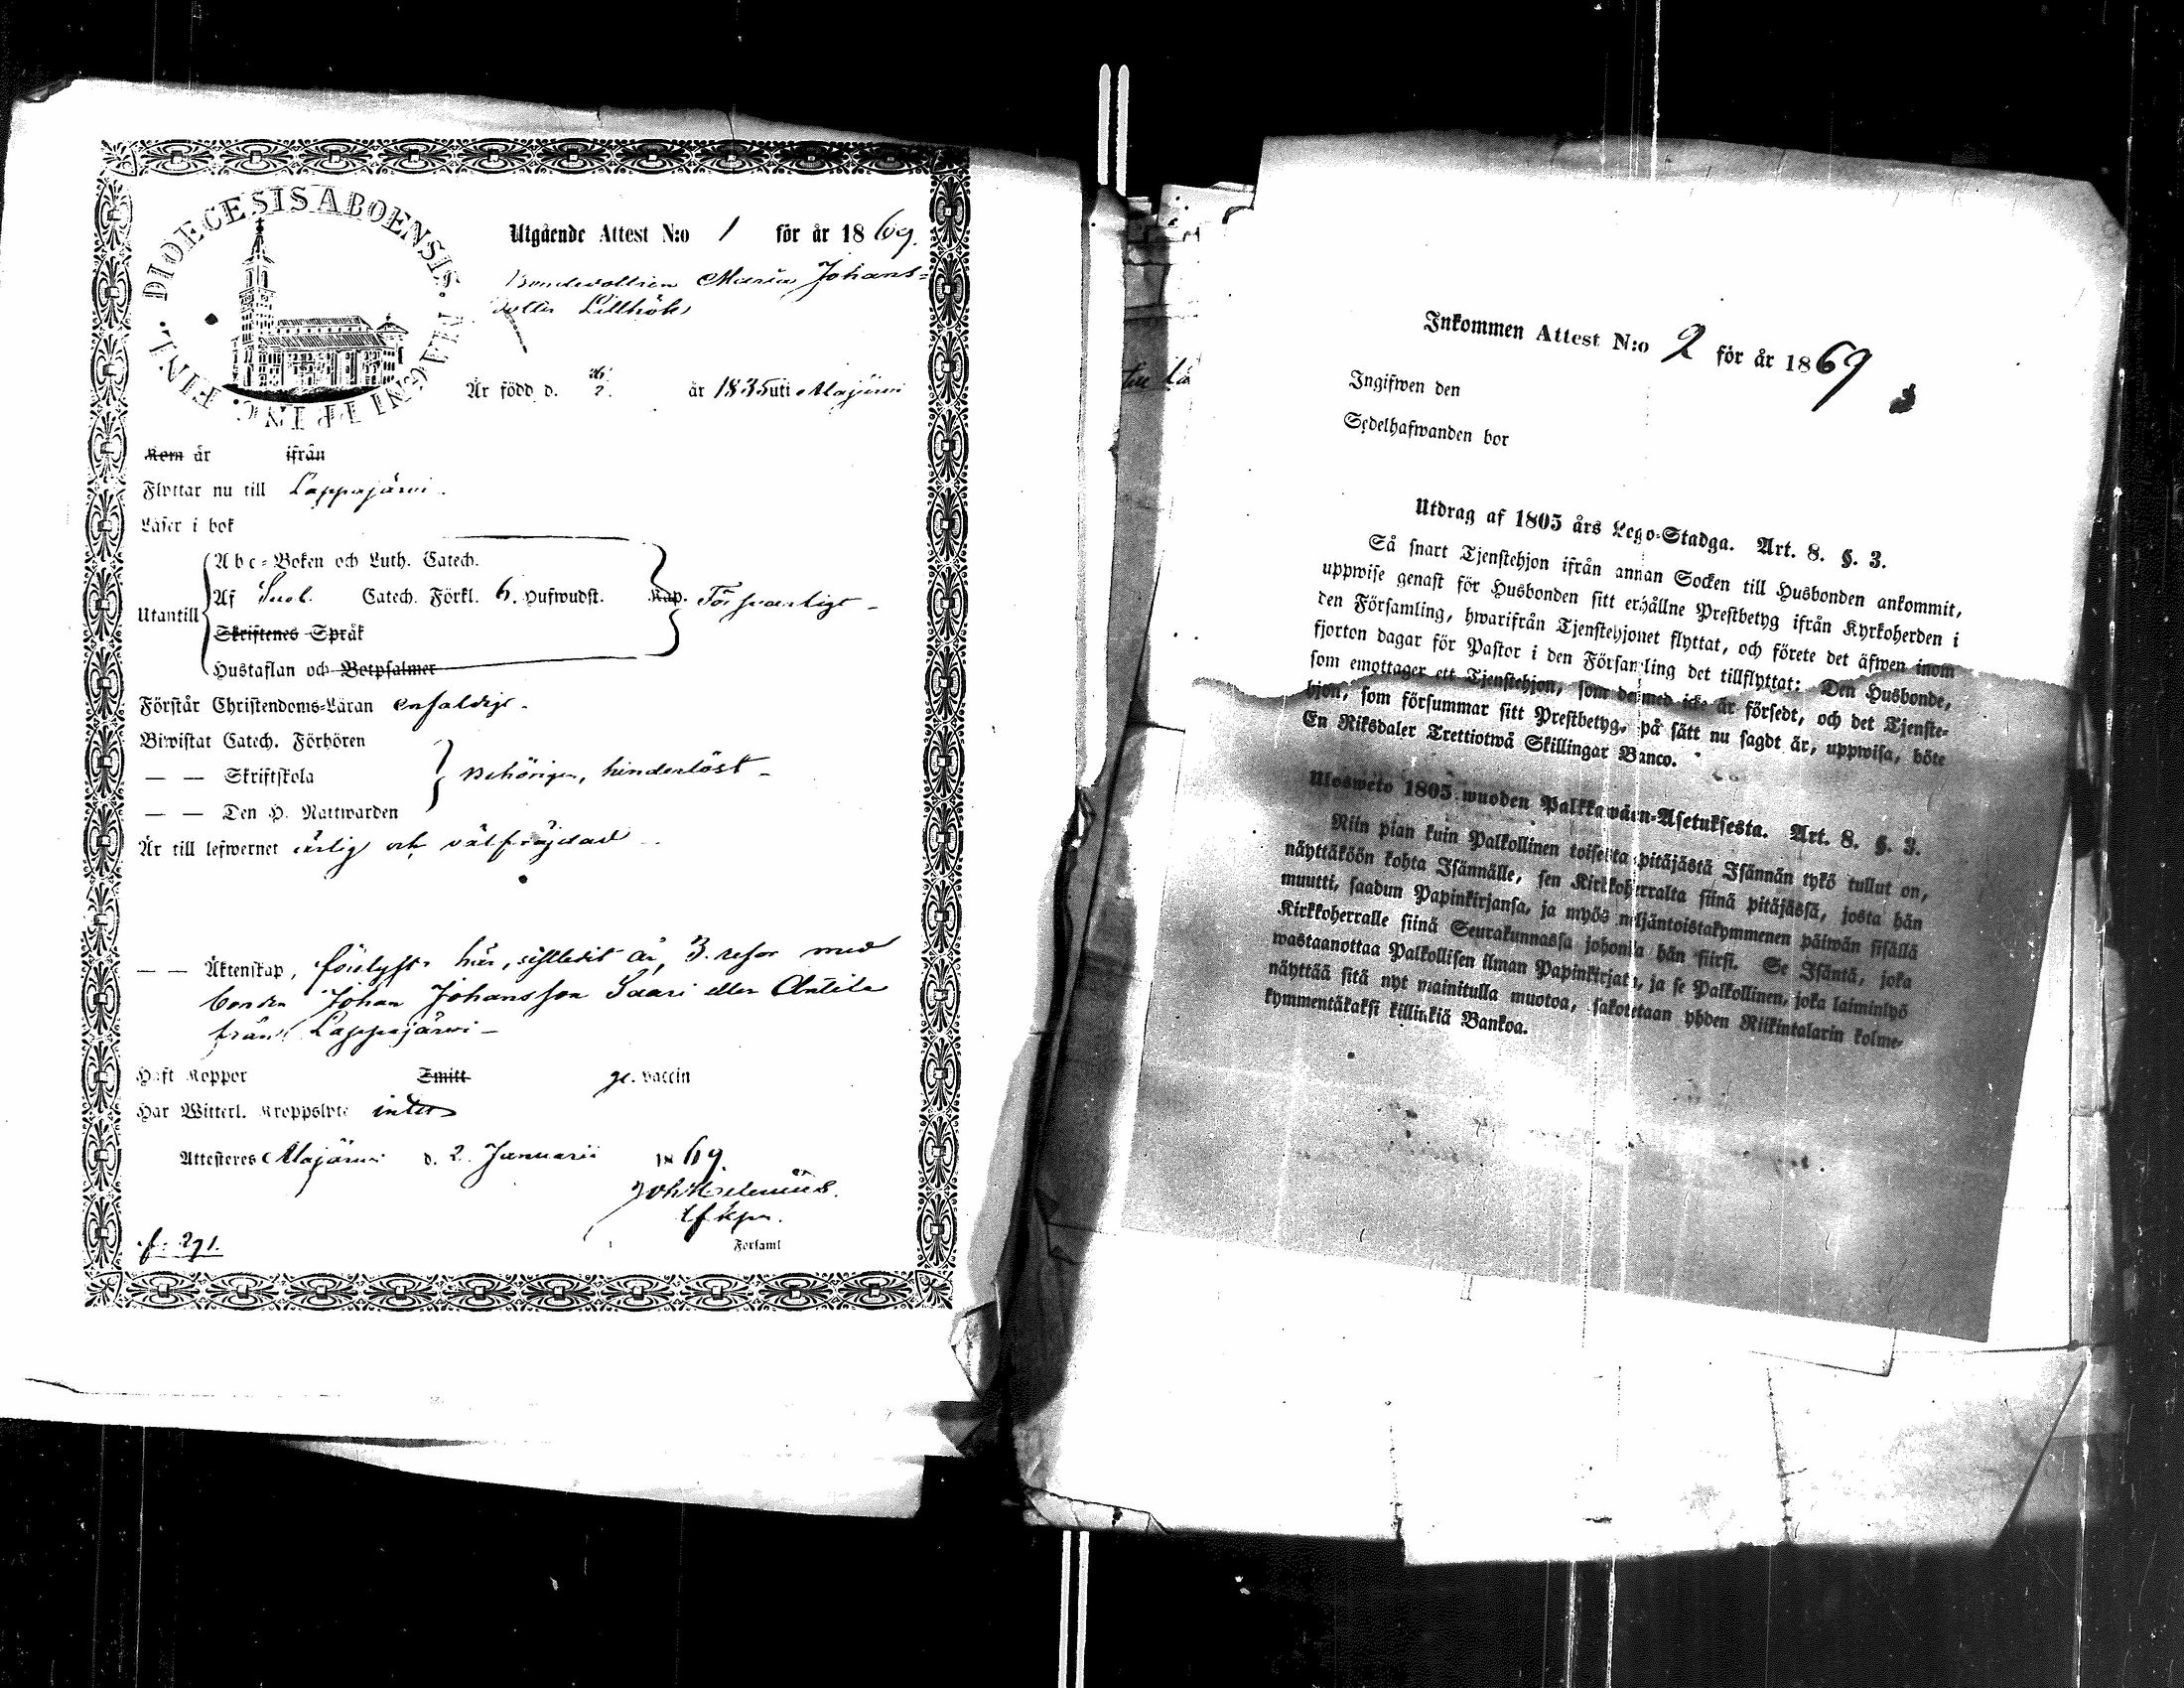 DIOECESIS ABOENSIS. MAGNI PRINC. FINL.
Utgående Attest N:o 1 för år 1869.
Bondedottren Maria Johans=
dotter Lillhök
Är född d. 26/2. år 1835 uti Alajärvi
Kom år ifrån
Flyttar nu till Lappajärvi.
Läser i bok
Abc-Boken och Luth. Catech.
Utantill Af Sueb. Catech. Förkl. 6. Hufwudst. Kap. Försvarligt -
Skriftenes Språk
Hustaflan och Botpsalmer
Förstår Christendoms-Läran enfaldigt -
Biwistat Catech. Förhören
— — Skriftskola behörigen, hinderlöst -
— — Den H. Nattwarden
Är till lefwernet ärlig och välfräjdad
— — Äktenskap, förelyst här, sistledit år, 3. resor med
bonden Johan Johansson Saari eller Antila
från Lappajärvi -
Haft Koppor Smitt ge. vaccin
Har Witterl. Kroppslyte intet
Attesteres Alajärvi d. 2. Januarii 1869.
Joh
tf kpn.
Forsaml
f. 291.
Inkommen Attest N:o 2 för år 1869
Ingifwen den
Sedelhafwanden bor
Utdrag af 1805 års Lego-Stadga. Art. 8. §. 3.
Så snart Tjenstehjon ifrån annan Socken till Husbonden ankommit,
uppwise genast för Husbonden sitt erhållne Prestbetyg ifrån Kyrkoherden i
den Församling, hwarifrån Tjenstehjonet flyttat, och förete det äfwen inom
fjorton dagar för Pastor i den Församling det tillflyttat: Den Husbonde,
som emottager ett Tjenstehjon, som dermed icke är försedt, och det Tjenste-
hjon, som försummar sitt Prestbetyg, på sätt nu sagdt är, uppwisa, böte
En Riksdaler Trettiotwå Skillingar Banco.
Ulosweto 1805 wuoden Palkkawäen-Asetuksesta. Art. 8. §. 3.
Niin pian kuin Palkollinen toisesta pitäjästä Isännän tykö tullut on,
näyttäköön kohta Isännälle, sen Kirkkoherralta siinä pitäjässä, josta hän
muutti, saadun Papinkirjansa, ja myös neljäntoistakymmenen päiwän sisällä
Kirkkoherralle siinä Seurakunnassa johonka hän siirsi. Se Isäntä, joka
wastaanottaa Palkollisen ilman Papinkirjata, ja se Palkollinen, joka laiminlyö
näyttää sitä nyt mainitulla muotoa, sakotetaan yhden Riikintalarin kolme-
kymmentäkaksi killinkiä Bankoa.